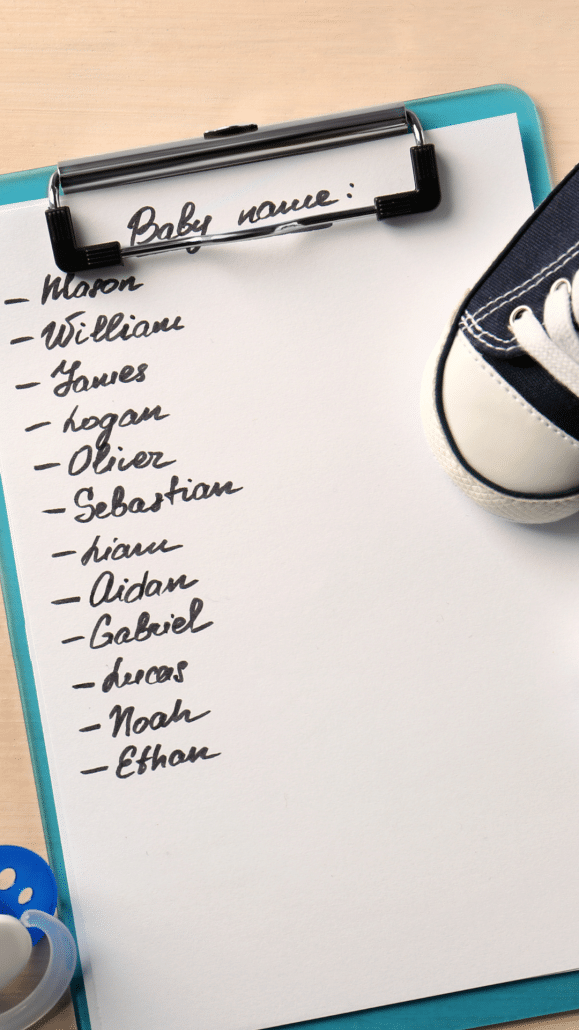 Baby name:
- Mason
- William
- James
- Logan
- Oliver
- Sebastian
- Liam
- Aidan
- Gabriel
- Lucas
- Noah
- Ethan